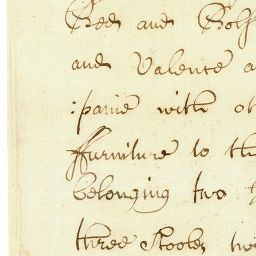 Bed and Bols
and Valence a
:panie with ot
ffurniture to th
belonging two
three Stooles